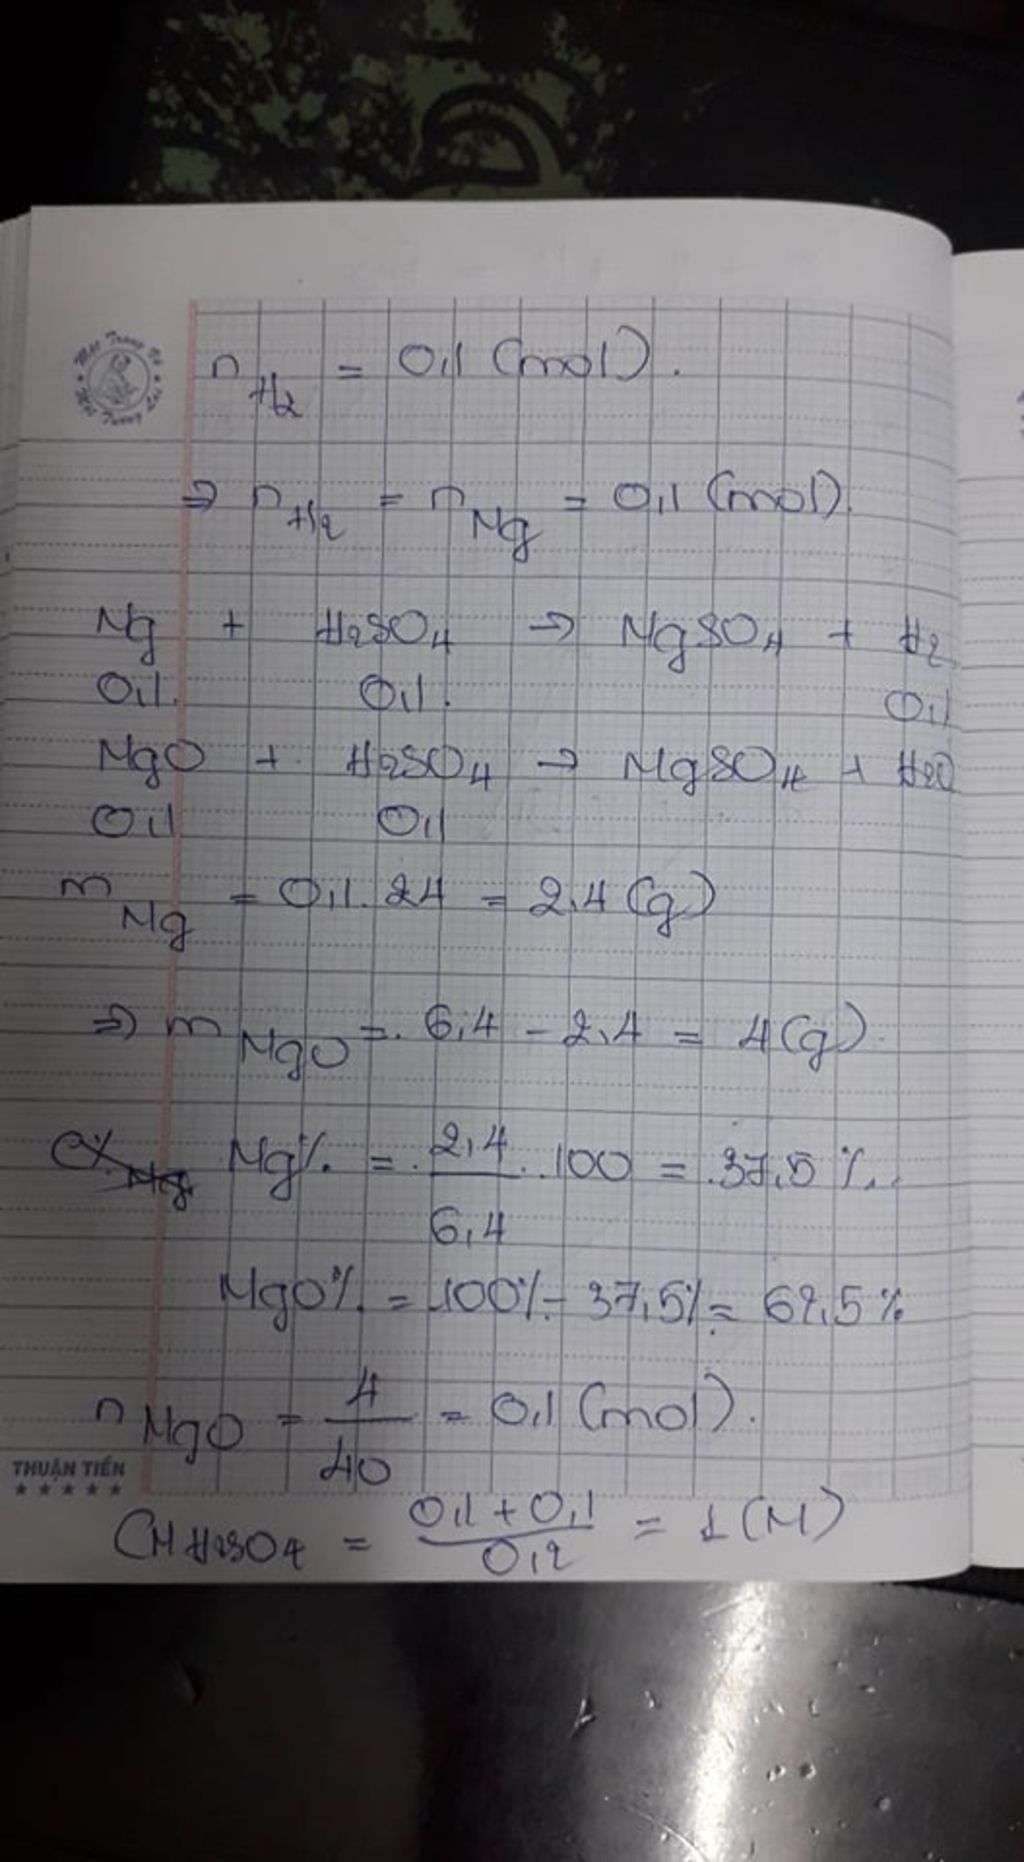 n H2 = 0,1 (mol).
⇒ n H2 = n Mg = 0,1 (mol).
Mg + H2SO4 → MgSO4 + H2
0,1. 0,1. 0,1
MgO + H2SO4 → MgSO4 + H2O
0,1 0,1
m Mg = 0,1.24 = 2,4 (g)
⇒ m MgO = 6,4 - 2,4 = 4 (g).
Mg% = 2,4/6,4 . 100 = 37,5 %.
MgO% = 100% - 37,5% = 62,5 %
n MgO = 4/40 = 0,1 (mol).
THUẬN TIẾN
CM H2SO4 = 0,1 + 0,1/0,2 = 1 (M)